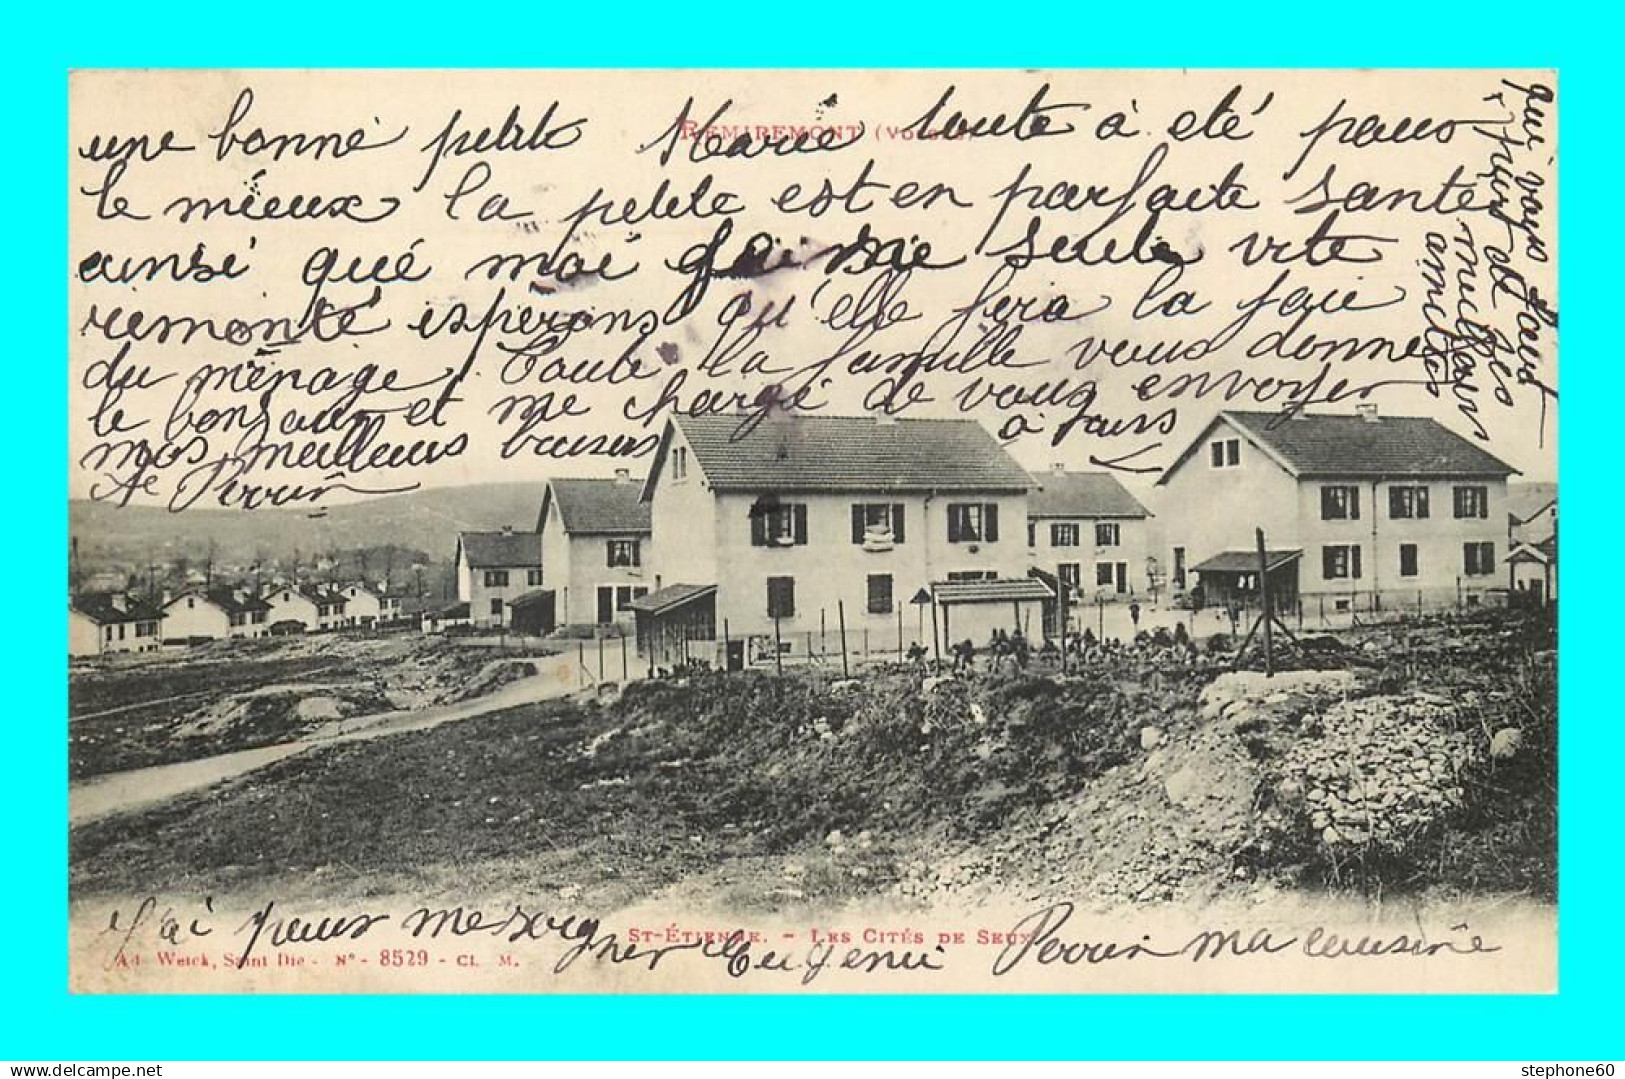 REMIREMONT (Vosges)
une bonne petite Marie toute à été pour
le mieux la petite est en parfaite sante
ainsi qué moi seule vite
remonté espérons qu'elle fera la joie
du ménage. Toute la famille vous donne
le bonjour et me charge de vous envoyer
mos meilleurs baisers à tous
A Perrin
qui vous
amitiés
J'ai pour me soigner Eugenie Perrin ma cousine
ST-ÉTIENNE. - LES CITÉS DE SEUX
Ad. Weick, Saint Dié - N° - 8529 - CL. M.
stephone60